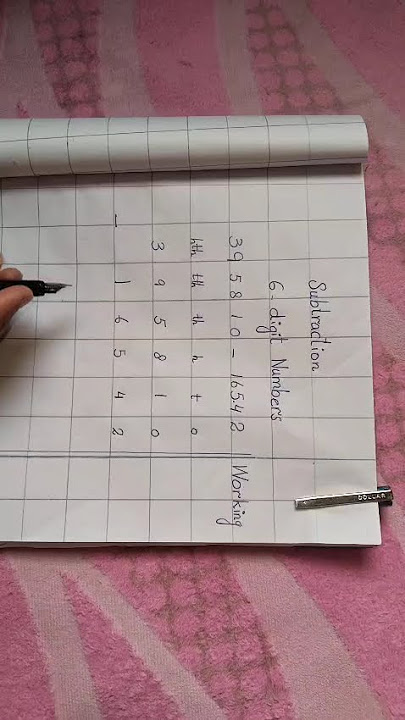 Subtraction
6-digit Numbers
395810 - 16542 | Working
hth tth th h t o
3 9 5 8 1 0
- 1 6 5 4 2
DOLLAR